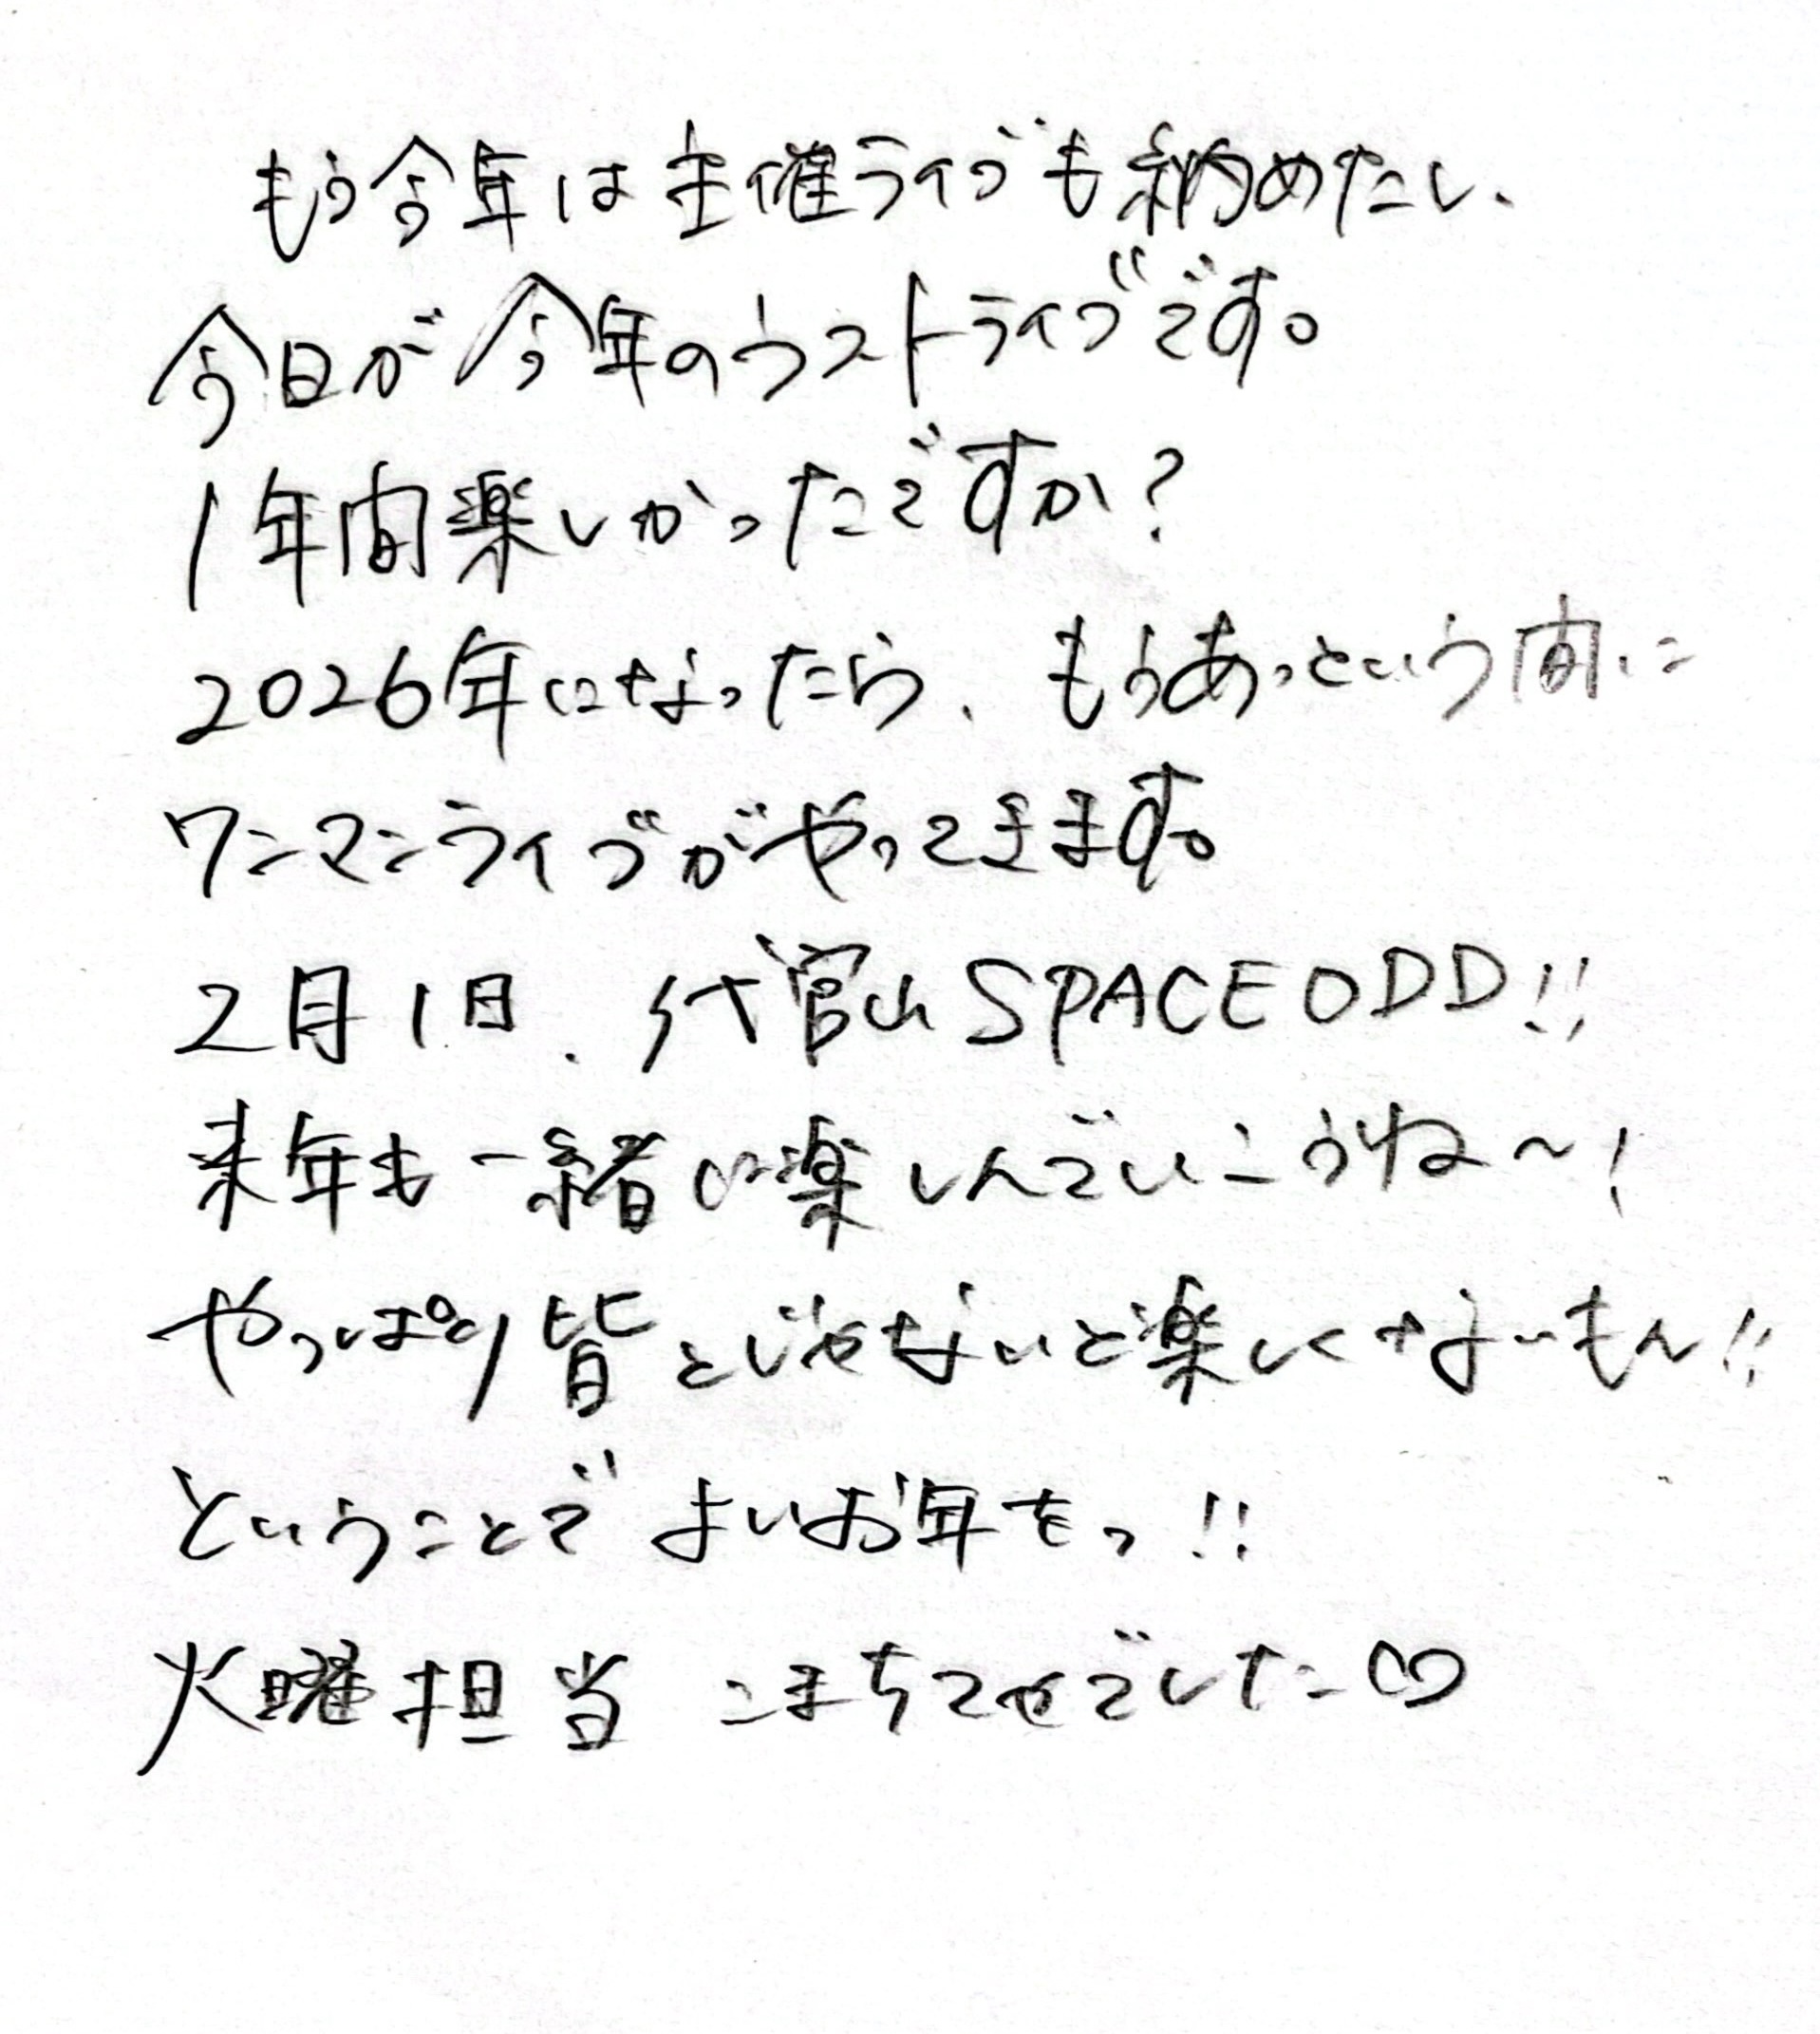 もう今年は主催ライブも納めたし、
今日が今年のラストライブです。
1年間楽しかったですか?
2026年になったら、もうあっという間に
ワンマンライブがやってきます。
2月1日、代官山SPACEODD!!
来年も一緒に楽しんでいこうね〜!
やっぱり皆とじゃないと楽しくなーいもん!!
ということでよいお年をっ!!
火曜担当 こまちてゃでした♡